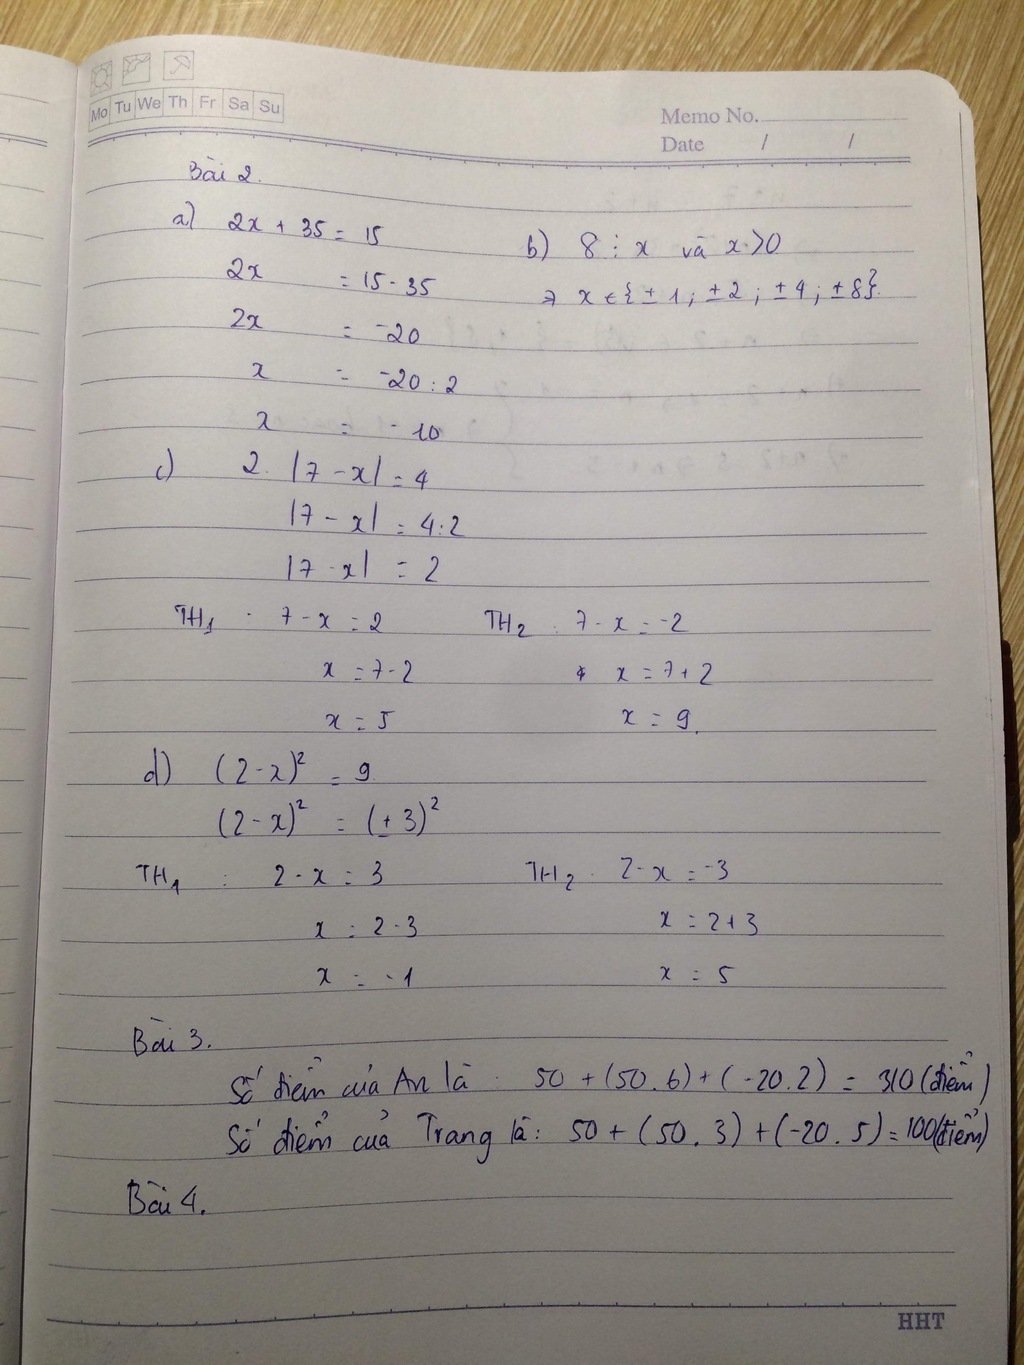 Mo Tu We Th Fr Sa Su
Memo No.
Date / /
Bài 2.
a) 2x + 35 = 15
2x = 15 - 35
2x = -20
x = -20 : 2
x = -10
b) 8 ⋮ x và x > 0
⇒ x ∈ {± 1 ; ± 2 ; ± 4 ; ± 8}.
c) 2. |7 - x| = 4
|7 - x| = 4 : 2
|7 - x| = 2
TH1 : 7 - x = 2
x = 7 - 2
x = 5
TH2 : 7 - x = -2
x = 7 + 2
x = 9.
d) (2 - x)² = 9
(2 - x)² = (± 3)²
TH1 : 2 - x = 3
x = 2 - 3
x = -1
TH2 : 2 - x = -3
x = 2 + 3
x = 5
Bài 3.
Số điểm của An là : 50 + (50 . 6) + (-20 . 2) = 310 (điểm)
Số điểm của Trang là : 50 + (50 . 3) + (-20 . 5) = 100 (điểm)
Bài 4.
HHT